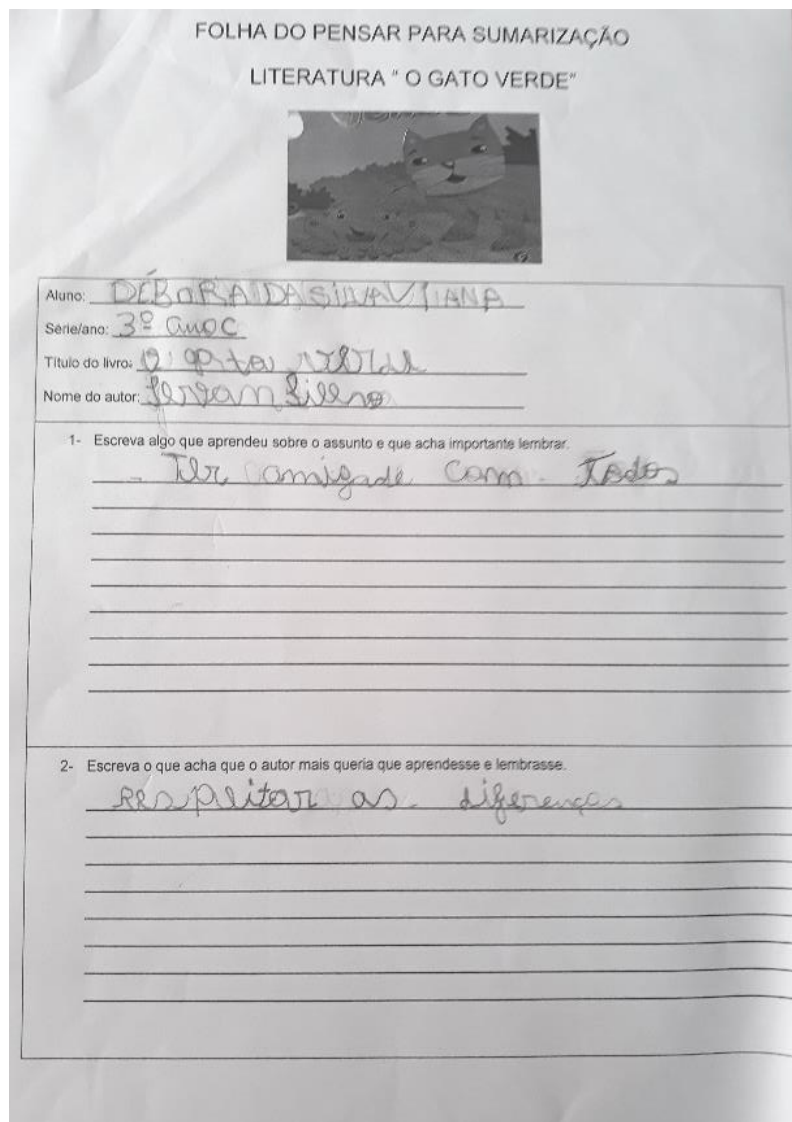 FOLHA DO PENSAR PARA SUMARIZAÇÃO
LITERATURA " O GATO VERDE"
Aluno: DÉBORA DA SILVA VIANA
Série/ano: 3º ano C
Título do livro: O gato verde
Nome do autor:
1- Escreva algo que aprendeu sobre o assunto e que acha importante lembrar.
Ter amigade com Todos
2- Escreva o que acha que o autor mais queria que aprendesse e lembrasse.
respeitar as diferenças